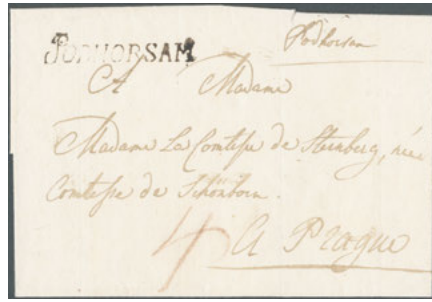 PODHORSAM
Podhorsam
A Madame
Madame La Comtesse de Sternberg, née
Comtesse de Schönborn.
4
A Prague